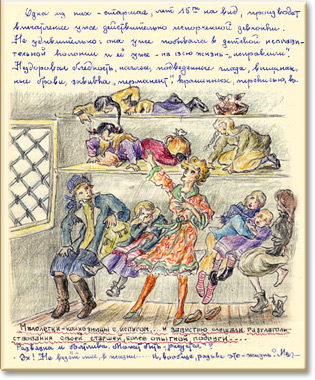 Одна из них - старшая, лет 15ти на вид, производит
впечатление уже действительно испорченной девчонки.
Не удивительно: она уже побывала в детской исправи-
тельной колонии и её уже - на всю жизнь - "исправили".
Нездоровая бледность, наглые, подведенные глаза,
ные брови, завивка "перманент" крашеных,
Малолетки-колхозницы с испугом... и завистью слушали разглаголь-
ствования своей старшей, более опытной подруги...
Развязна и болтлива. Может быть - рисуется?
- Эх! Не везёт мне в жизни... И, вообще, разве это - жизнь?